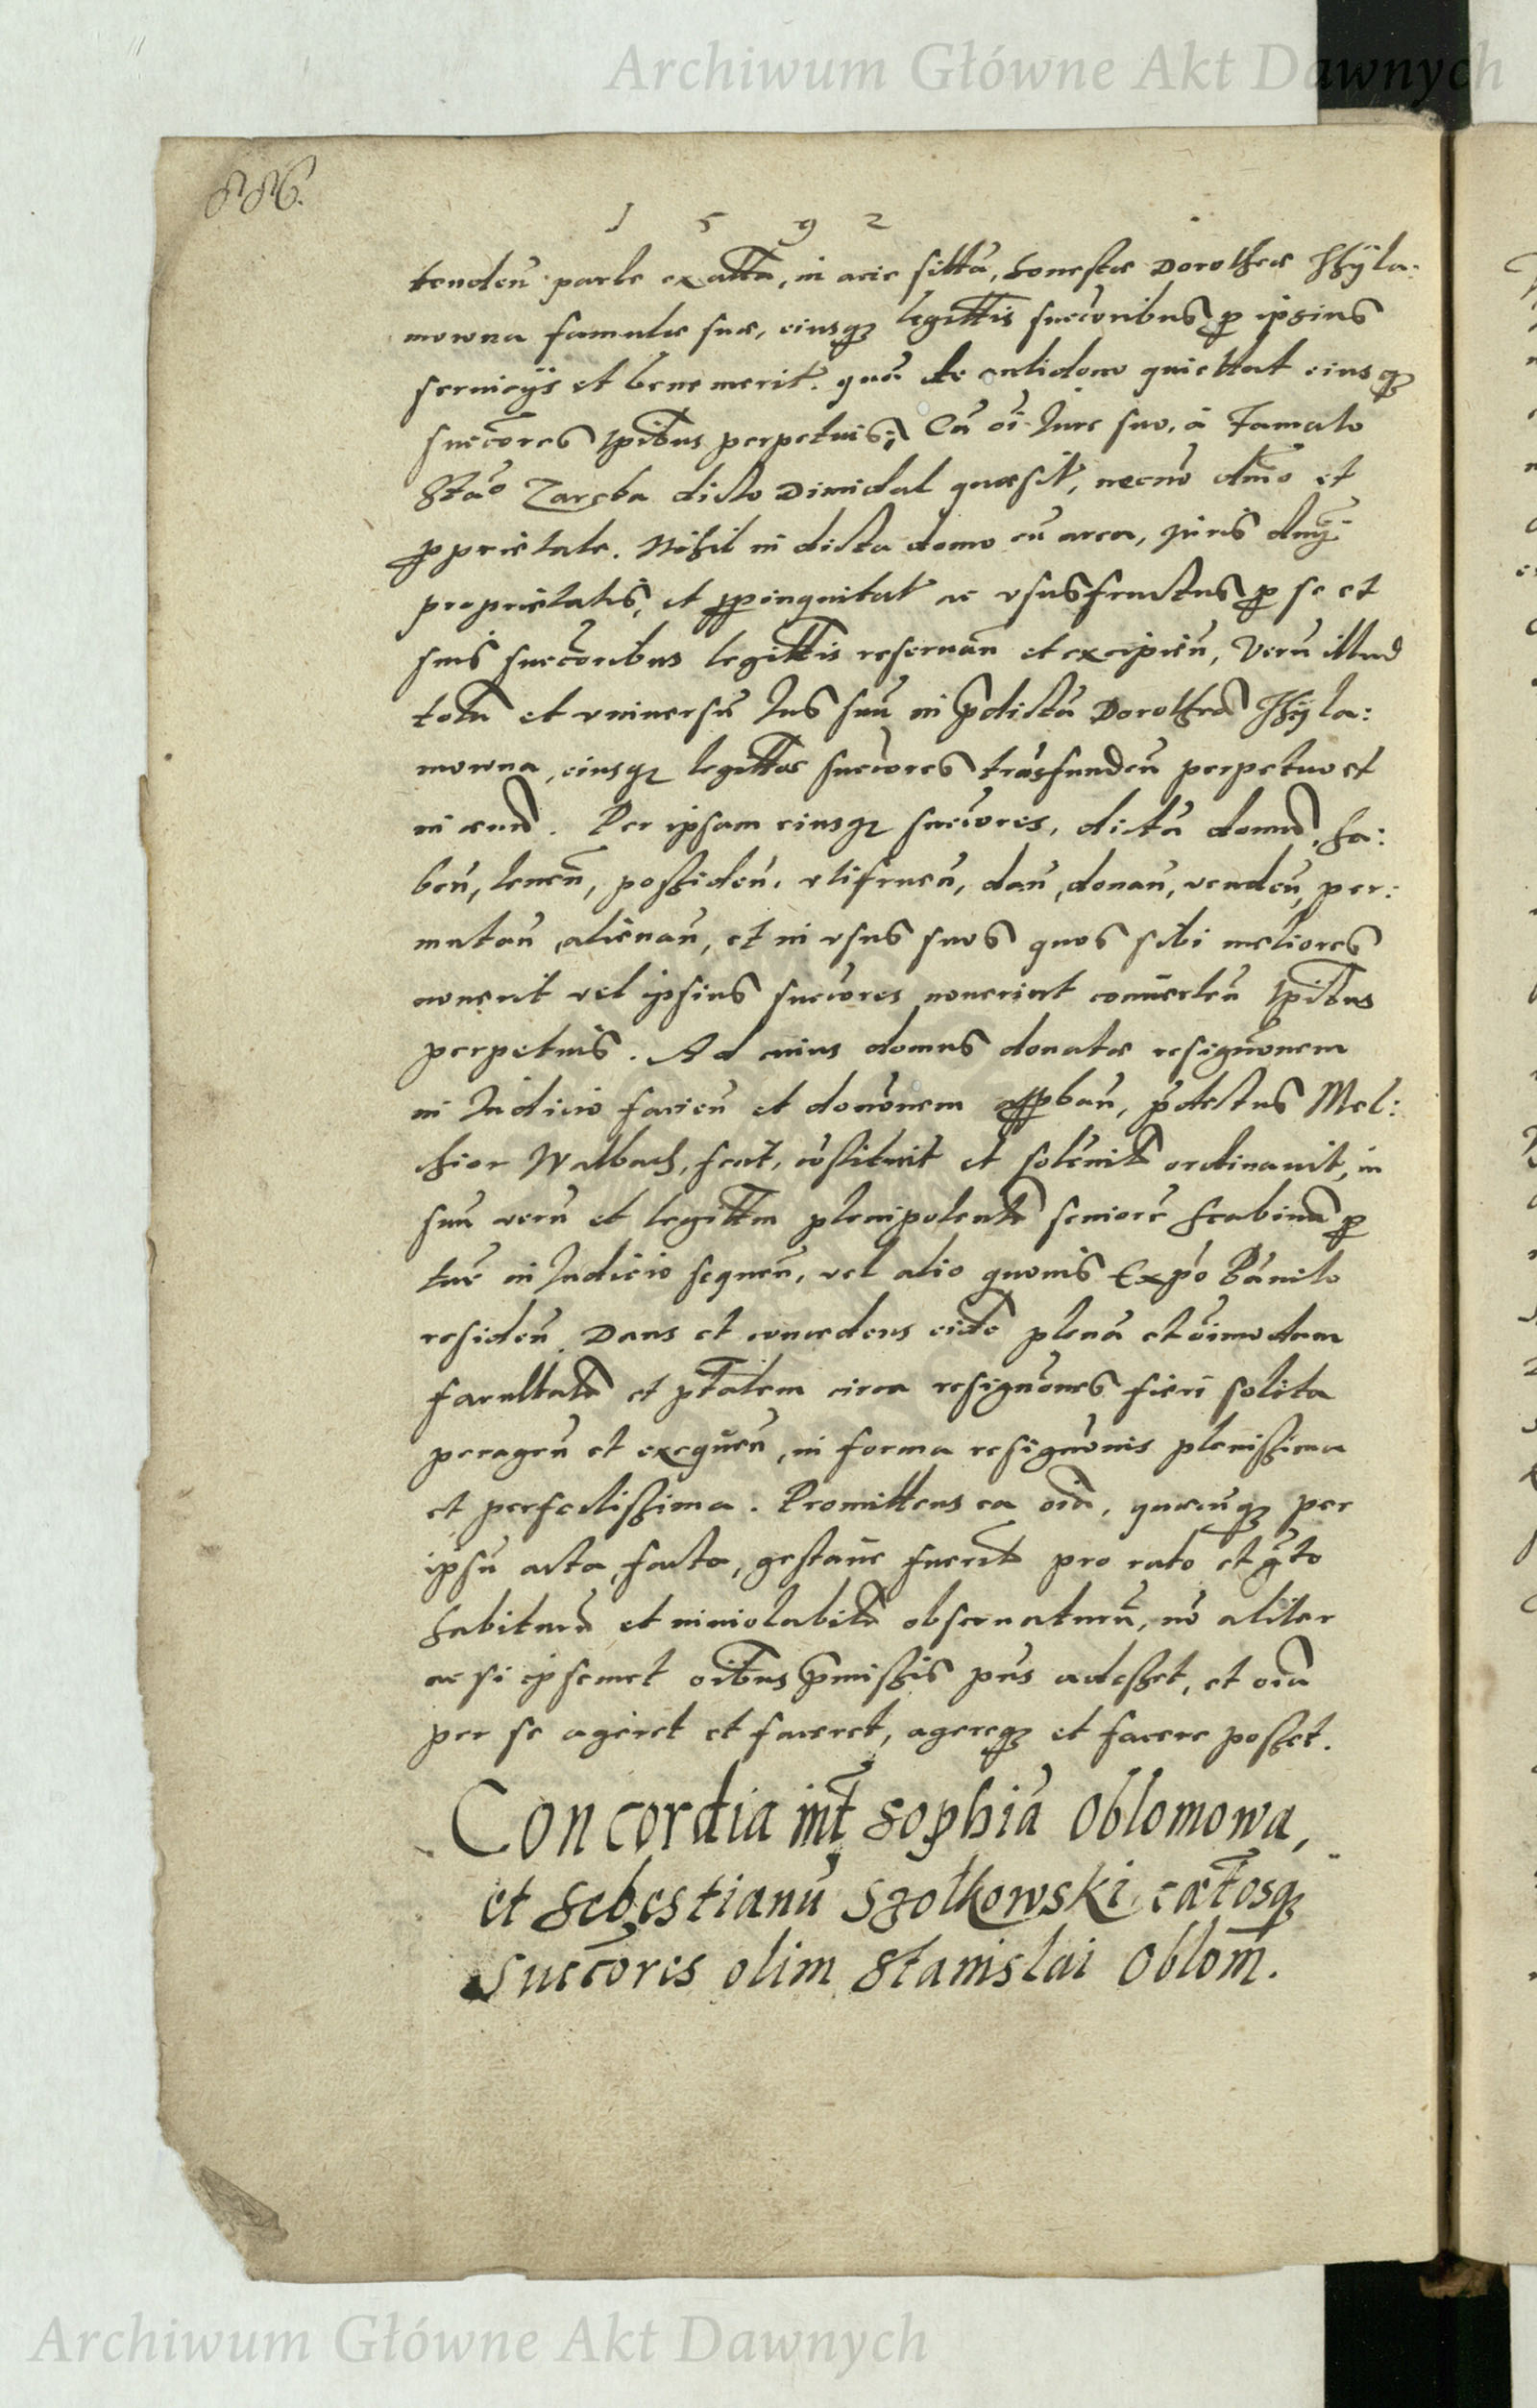 Archiwum Główne Akt Dawnych
886.
1 5 9 2
tendeñ parte exacta, in acie sittã, honestæ Dorotheæ Hÿla:
mowna famulæ suæ, eiusq3 legittis succoribus p ipsius
seruicÿs et bene merit. quã de antidono quiettat eiusq3
succores tpibus perpetuis; Cũ oi Iure suo, à Famato
Stão Zaręba dicto Dimidal quæsit, necnõ dnio et
pprietate. Nihil in dicta domo cũ area, iuris dnij
proprietatis, et ppinquitat ac vsusfructus p se et
suis succoribus legittis reseruañ et excipieñ, Verũ illud
totũ et vniuersũ Ius suũ in pdictã Dorotheã Hÿla:
mowna, eiusq3 legittos succores trãsfundeñ perpetuo et
in æuũ. Per ipsam eiusq3 succores, dictã domũ, ha:
beñ, teneñ, possideñ, vtifrueñ, dañ, donañ, vendeñ, per:
mutañ, alienañ, et in vsus suos quos sibi meliores
nouerit vel ipsius succores nouerint conuerteñ tpibus
perpetuis. Ad cuius domus donatæ resignõnem
in Iudicio facieñ et donõnem appbañ, pdictus Mel:
chior Walbach, fecit, cõstituit et solẽnit ordinauit, in
suũ verũ et legittm plenipotentẽ seniorẽ Scabinũ p
tũc in Iudicio sequeñ, vel alio quouis Expõ Bãnito
resideñ. Dans et concedens eidẽ plenã et õimodam
facultatẽ et ptãtem circa resignõnes fieri solita
perageñ et exequeñ, in forma resignõnis plenissima
et perfectissima. Promittens ea oiã, quæcũq3 per
ipsũ acta, facta, gestaue fuerit pro rato et grto
habiturũ et inuiolabitr obseruaturũ, nõ aliter
ac si ipsemet oibus pmissis pñs adesset, et oiã
per se ageret et faceret, agereq3 et facere posset.
Concordia int Sophiã Oblomowa,
et Sebestianũ Szolkowski cætosq3
Succores olim Stanislai Oblom.
Archiwum Główne Akt Dawnych